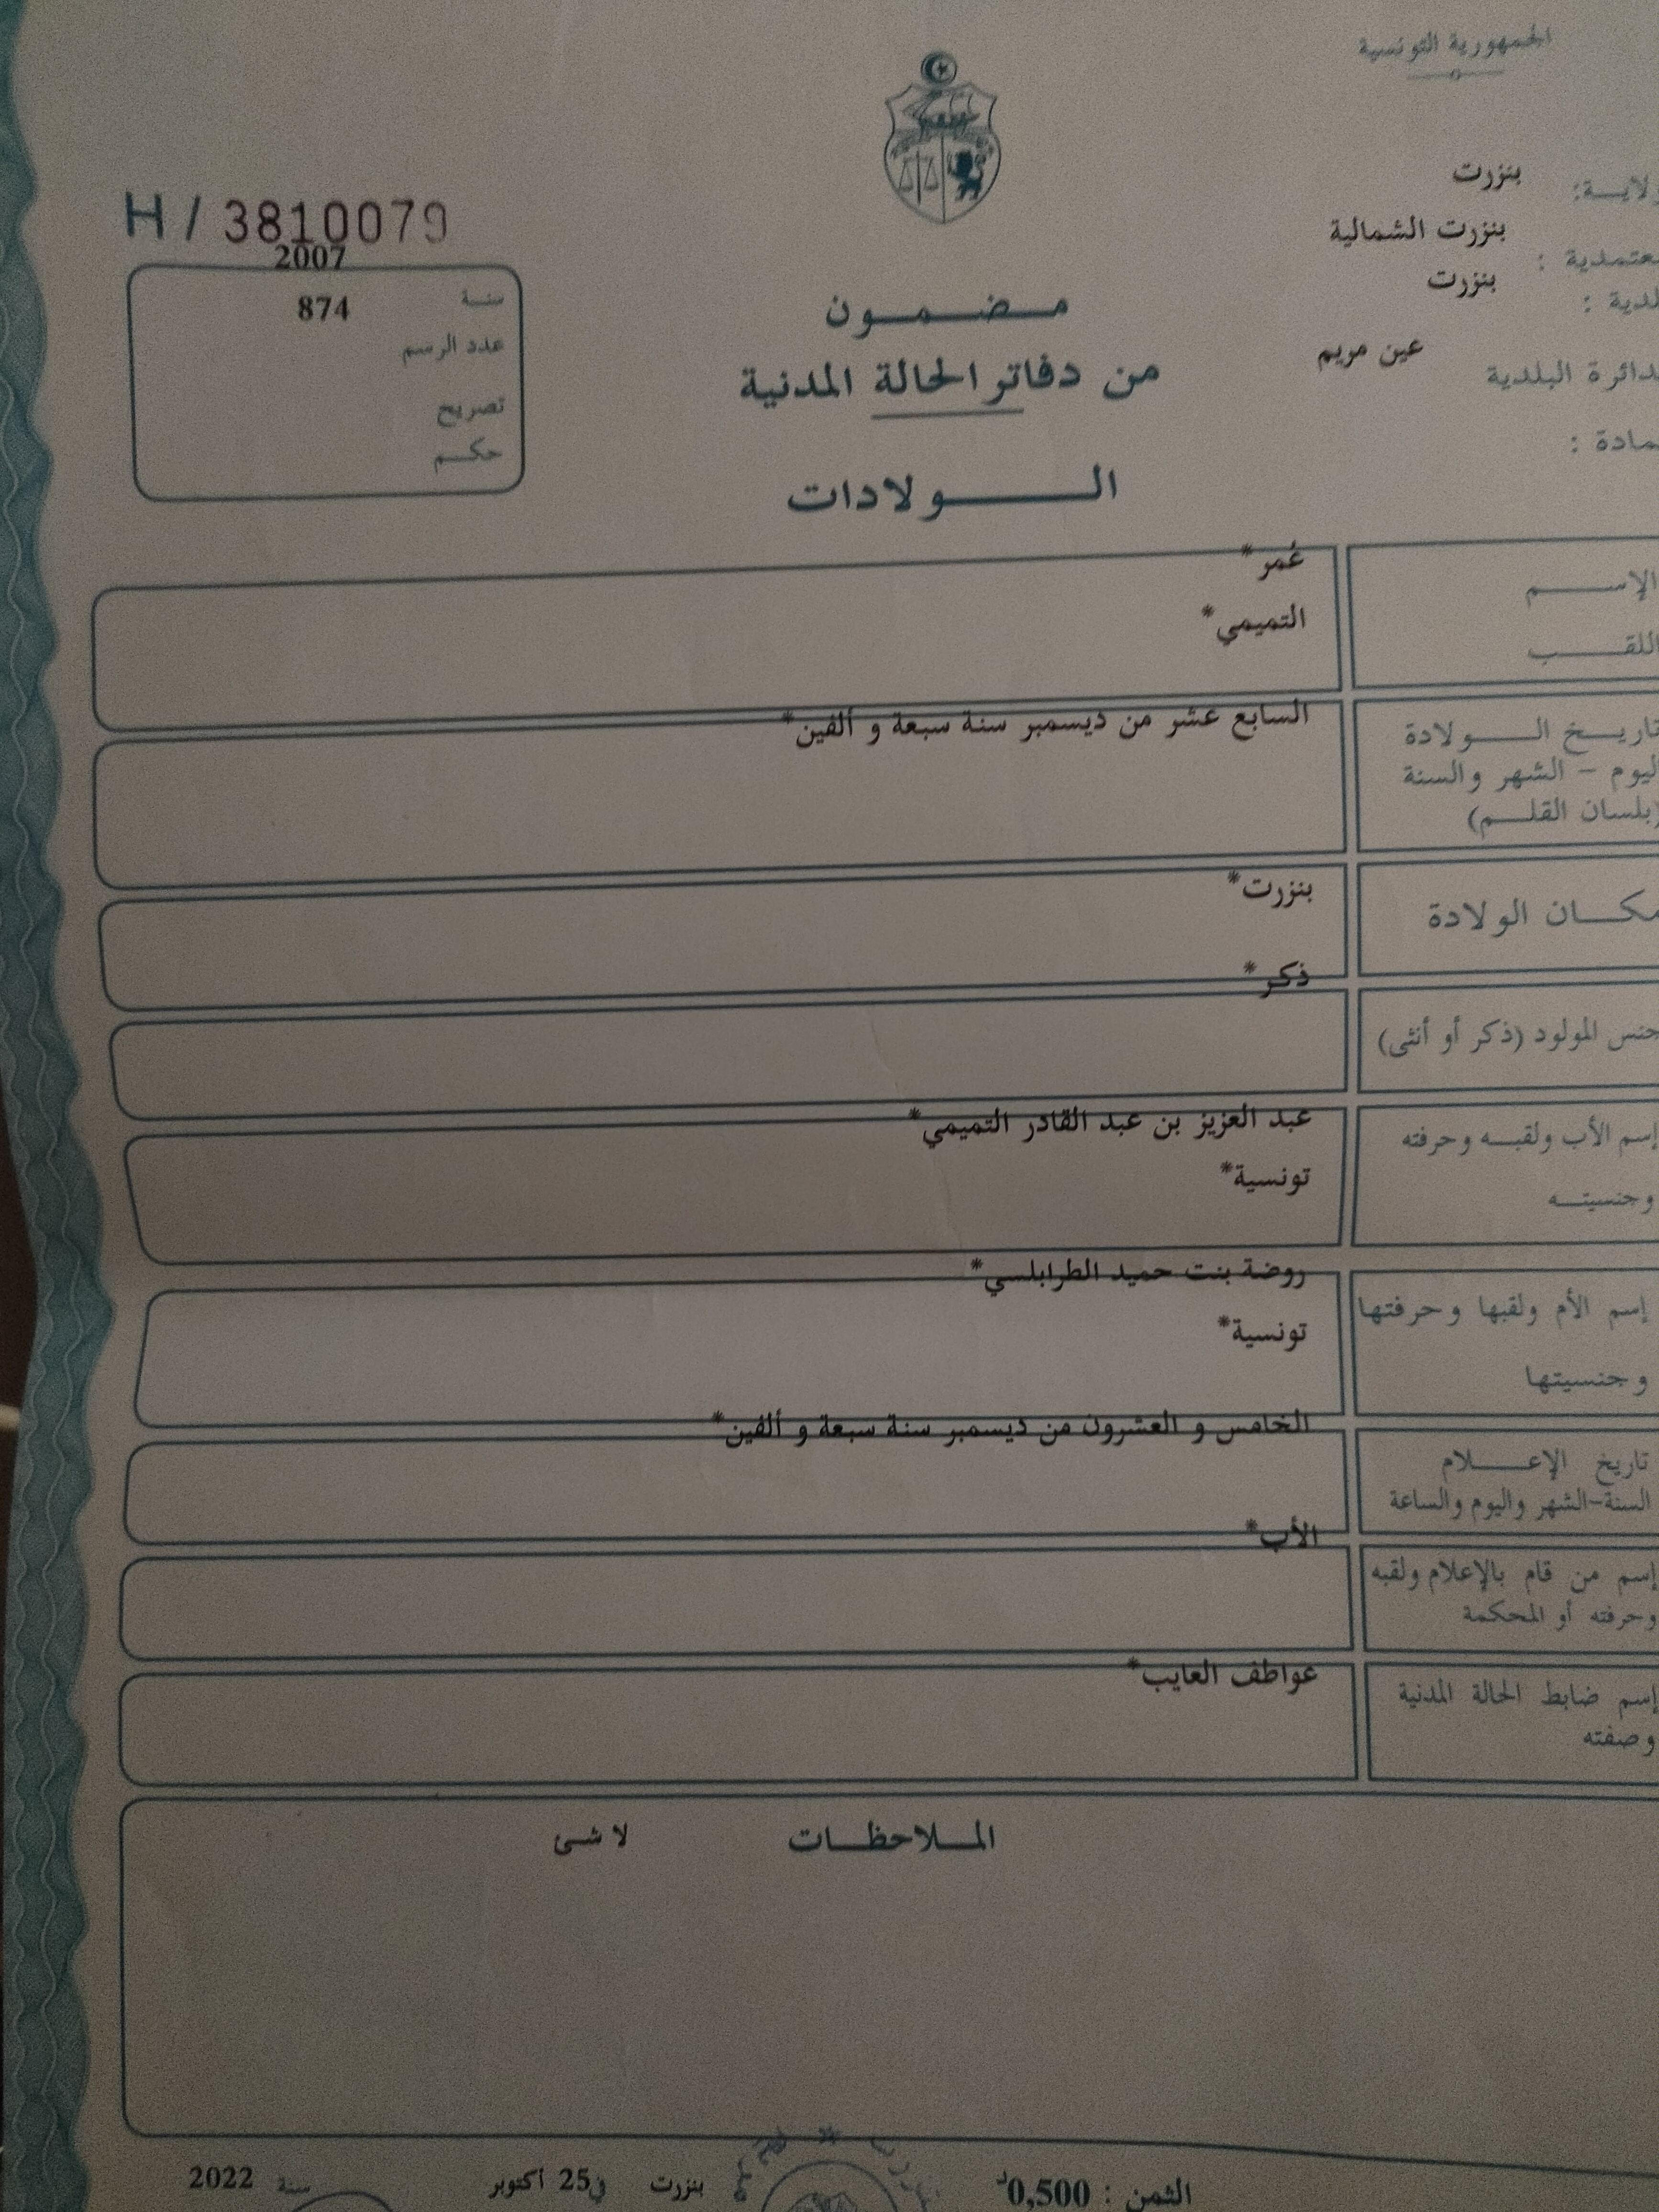 الجمهورية التونسية
ولاية: بنزرت
معتمدية : بنزرت الشمالية
بلدية : بنزرت
الدائرة البلدية عين مريم
عمادة :
H / 3810079
2007
سنة
874
عدد الرسم
تصريح
حكم
مضمون
من دفاتر الحالة المدنية
الولادات
الإسم عُمر*
اللقب التميمي*
تاريخ الولادة السابع عشر من ديسمبر سنة سبعة و ألفين*
اليوم - الشهر والسنة
(بلسان القلم)
مكان الولادة بنزرت*
ذكر*
جنس المولود (ذكر أو أنثى)
إسم الأب ولقبه وحرفته عبد العزيز بن عبد القادر التميمي*
وجنسيته تونسية*
روضة بنت حميد الطرابلسي*
إسم الأم ولقبها وحرفتها
تونسية*
وجنسيتها
الخامس و العشرون من ديسمبر سنة سبعة و ألفين*
تاريخ الإعلام
السنة-الشهر واليوم والساعة
الأب*
إسم من قام بالإعلام ولقبه
وحرفته أو المحكمة
عواطف العايب*
إسم ضابط الحالة المدنية
وصفته
الملاحظات لا شئ
الثمن : 0,500د بنزرت في 25 أكتوبر سنة 2022